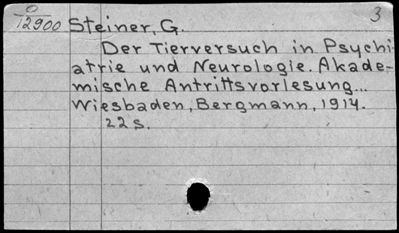 O
12900 Steiner, G. 3
Der Tierversuch in Psychi-
atrie und Neurologie. Akade-
mische Antrittsvorlesung...
Wiesbaden, Bergmann, 1914.
22 S.